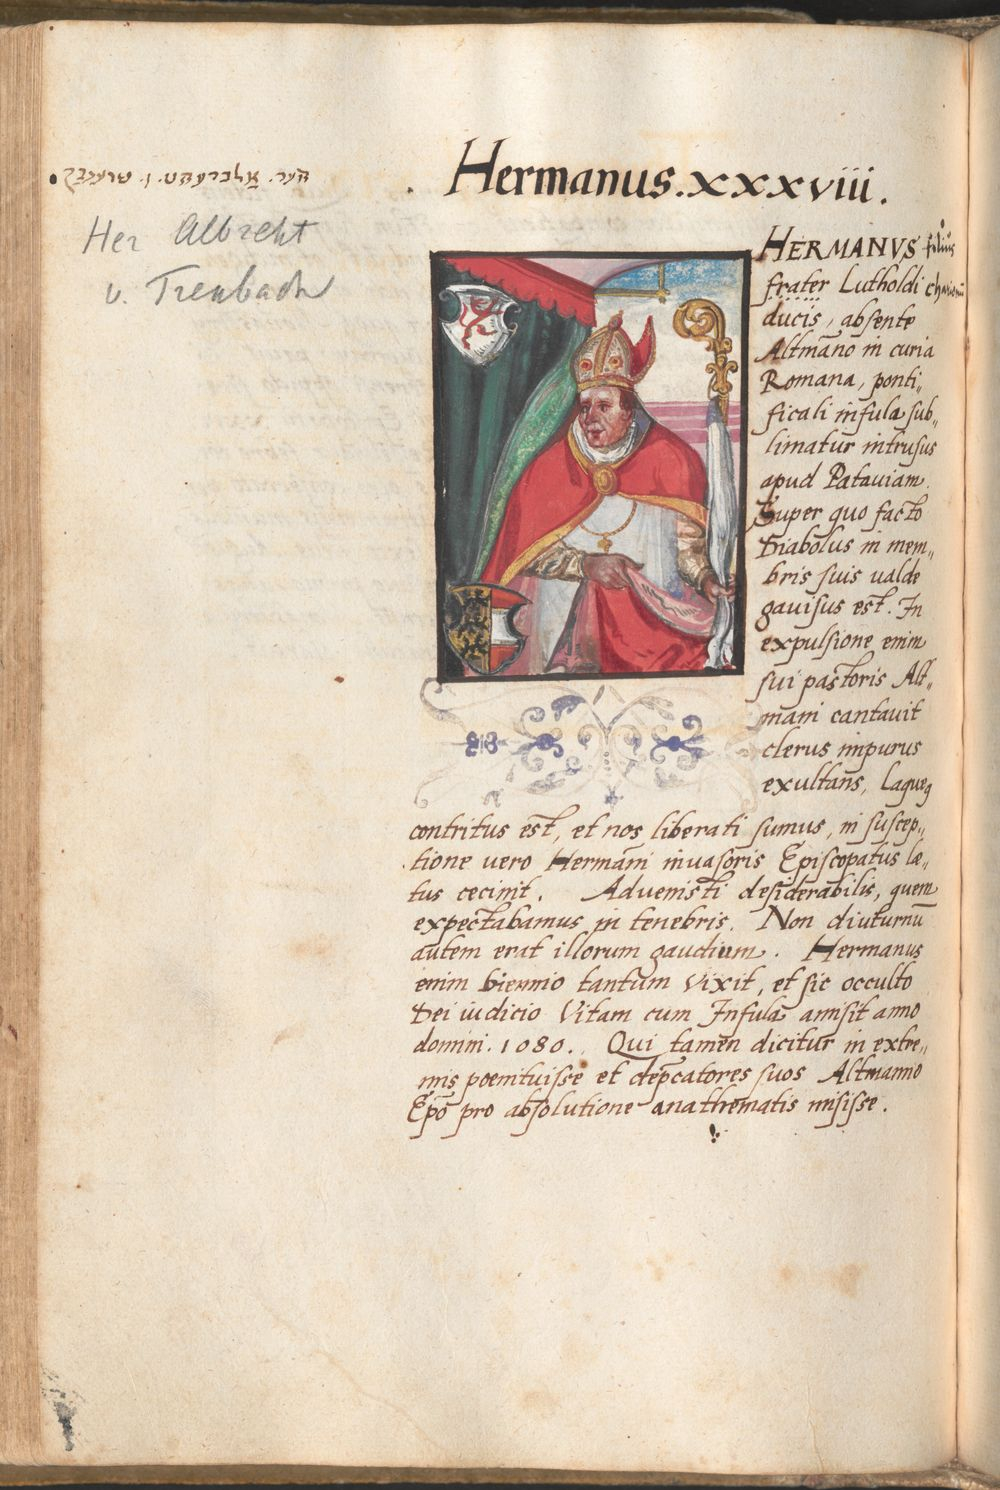 Hermanus. xxxviii.
HERMANVS filius
frater Lutholdi
ducis, absente
Altmãno in curia
Romana, ponti„
ficali infula sub„
limatur intrusus
apud Patauiam.
Super quo facto
Diabolus in mem„
bris suis ualde
gauisus est. In
expulsione enim
sui pastoris Alt„
mani cantauit
clerus impurus
exultans, Laqueq
contritus est, et nos liberati sumus, in suscep„
tione vero Hermani inuasoris Episcopatus læ„
tus cecinit. Aduenisti desiderabilis, quem
expectabamus in tenebris. Non diuturnū
autem erat illorum gaudium. Hermanus
enim biennio tantum vixit, et sic occulto
Dei iudicio Vitam cum Infula amisit anno
domini. 1080. Qui tamen dicitur in extre„
mis poenituisse et dep̃catores suos Altmanno
Ep̃o pro absolutione anathematis misisse.
Her Albrecht
v. Trenbach